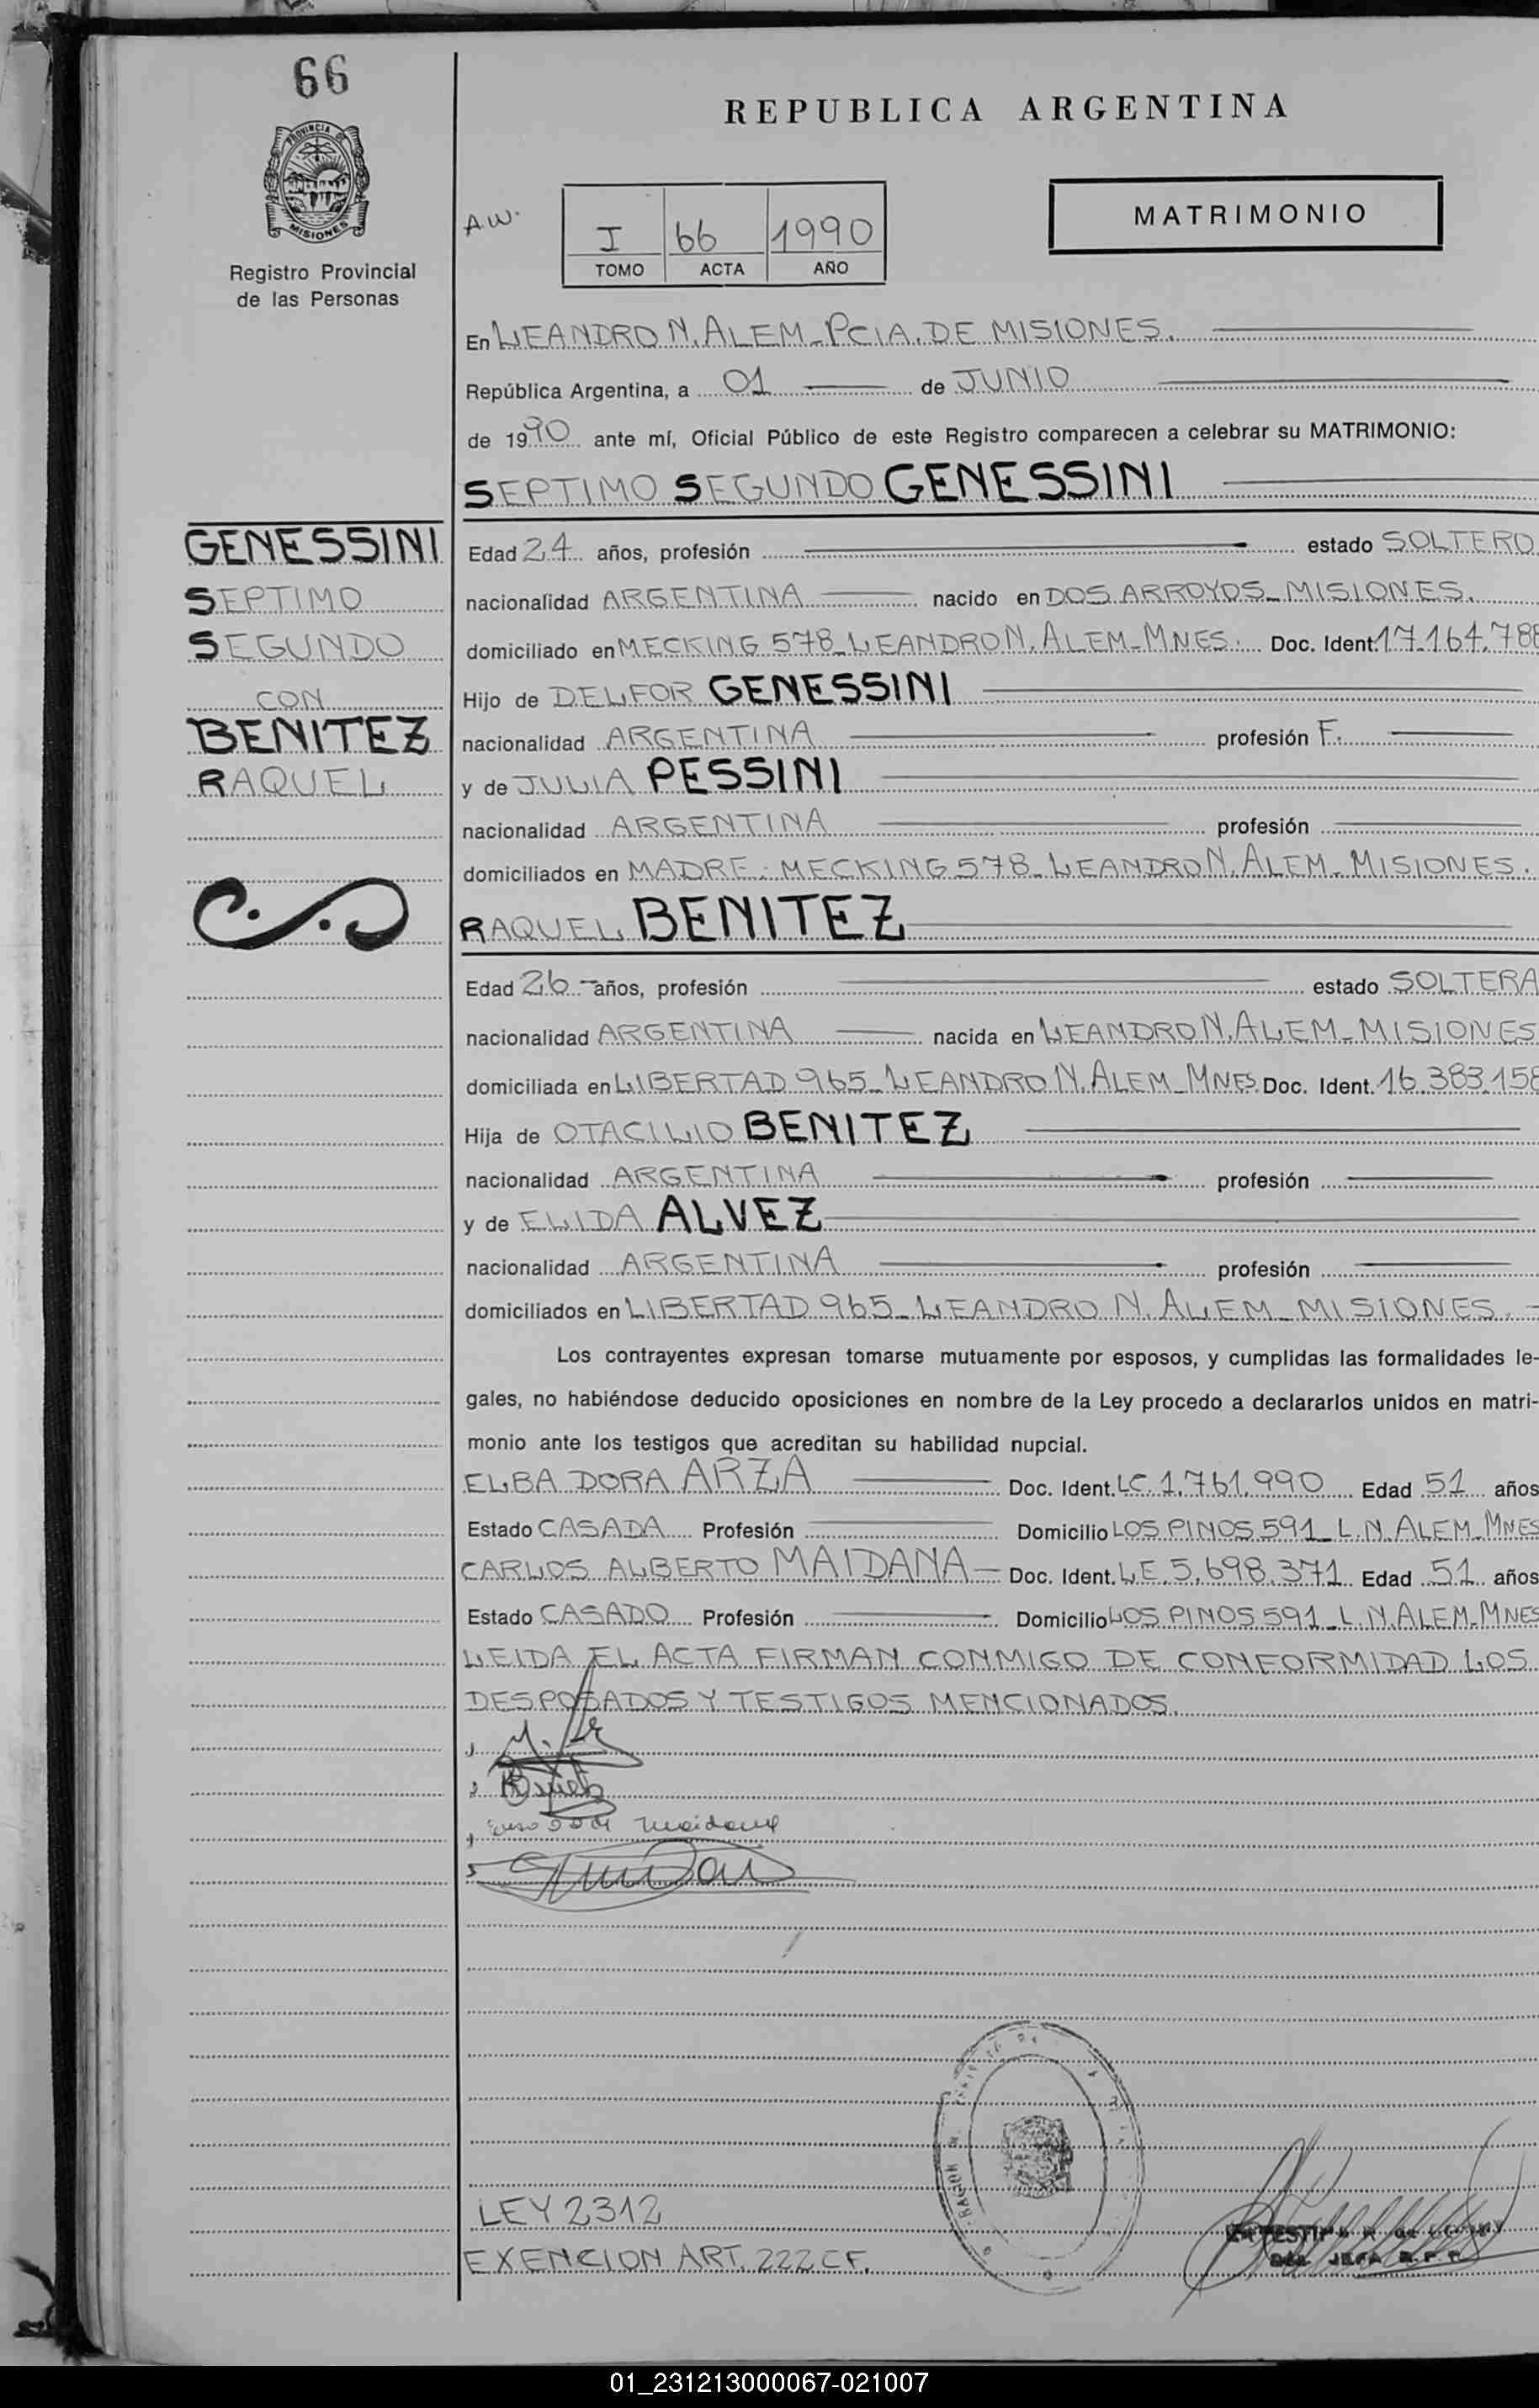 66
PROVINCIA DE
MISIONES
Registro Provincial
de las Personas
REPUBLICA ARGENTINA
A.W.
I 66 1990
TOMO ACTA AÑO
MATRIMONIO
En LEANDRO N. ALEM_PCIA. DE MISIONES.
República Argentina, a 01 de JUNIO
de 1990 ante mí, Oficial Público de este Registro comparecen a celebrar su MATRIMONIO:
SEPTIMO SEGUNDO GENESSINI
GENESSINI
SEPTIMO
SEGUNDO
CON
BENITEZ
RAQUEL
Edad 24 años, profesión estado SOLTERO
nacionalidad ARGENTINA nacido en DOS ARROYOS_MISIONES.
domiciliado en MECKING 578_LEANDRO N. ALEM_MNES. Doc. Ident. 17.164.788
Hijo de DELFOR GENESSINI
nacionalidad ARGENTINA profesión F.
y de JULIA PESSINI
nacionalidad ARGENTINA profesión
domiciliados en MADRE: MECKING 578_LEANDRO N. ALEM_MISIONES.
RAQUEL BENITEZ
Edad 26 años, profesión estado SOLTERA
nacionalidad ARGENTINA nacida en LEANDRO N. ALEM_MISIONES
domiciliada en LIBERTAD 965_LEANDRO N. ALEM_MNES. Doc. Ident. 16.383.158
Hija de OTACILIO BENITEZ
nacionalidad ARGENTINA profesión
y de ELIDA ALVEZ
nacionalidad ARGENTINA profesión
domiciliados en LIBERTAD 965_LEANDRO N. ALEM_MISIONES.
Los contrayentes expresan tomarse mutuamente por esposos, y cumplidas las formalidades le-
gales, no habiéndose deducido oposiciones en nombre de la Ley procedo a declararlos unidos en matri-
monio ante los testigos que acreditan su habilidad nupcial.
ELBA DORA ARZA Doc. Ident. LC. 1.761.990 Edad 51 años
Estado CASADA Profesión Domicilio LOS PINOS 591_L.N. ALEM_MNES
CARLOS ALBERTO MAIDANA Doc. Ident. LE. 5.698.371 Edad 51 años
Estado CASADO Profesión Domicilio LOS PINOS 591_L.N. ALEM_MNES
LEIDA EL ACTA FIRMAN CONMIGO DE CONFORMIDAD LOS
DESPOSADOS Y TESTIGOS MENCIONADOS.
LEY 2312
EXENCION ART. 222 CF.
JEFA R.P.P.
01_231213000067-021007